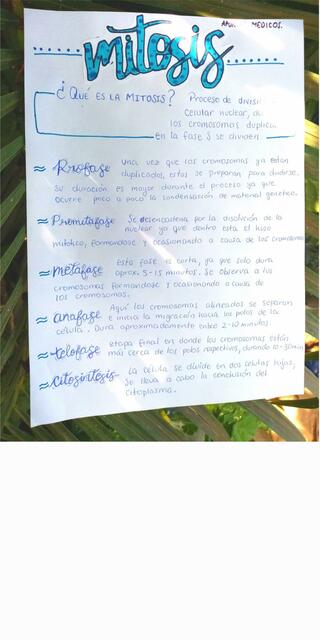 APUN MEDICOS.
mitosis
¿QUÉ ES LA MITOSIS? Proceso de divisi
celular nuclear, do
los cromosomas duplica
en la fase S se dividen
≈ Profase Una vez que los cromosomas ya están
duplicados, estos se preparan para dividirse.
Su duración es mayor durante el proceso ya que
ocurre poco a poco la condensación de material genético.
≈ Prometafase Se desencadena por la disolución de la
nuclear ya que dentro esta el huso
mitótico, formandose y ocasionando a causa de los cromosomas
≈ metafase Esta fase es corta, ya que solo dura
aprox. 5-15 minutos. Se observa a los
cromosomas formandose y ocasionando a causa de
los cromosomas.
≈ anafase Aquí los cromosomas alineados se separan
e inicia la migración hacia los polos de las
célula. Dura aproximadamente entre 2-10 minutos.
≈ telofase etapa final en donde los cromosomas están
más cerca de los polos respectivos, durando 10-30min
≈ citosintesis La célula se divide en dos células hijas,
Se lleva a cabo la conclusión del
citoplasma.